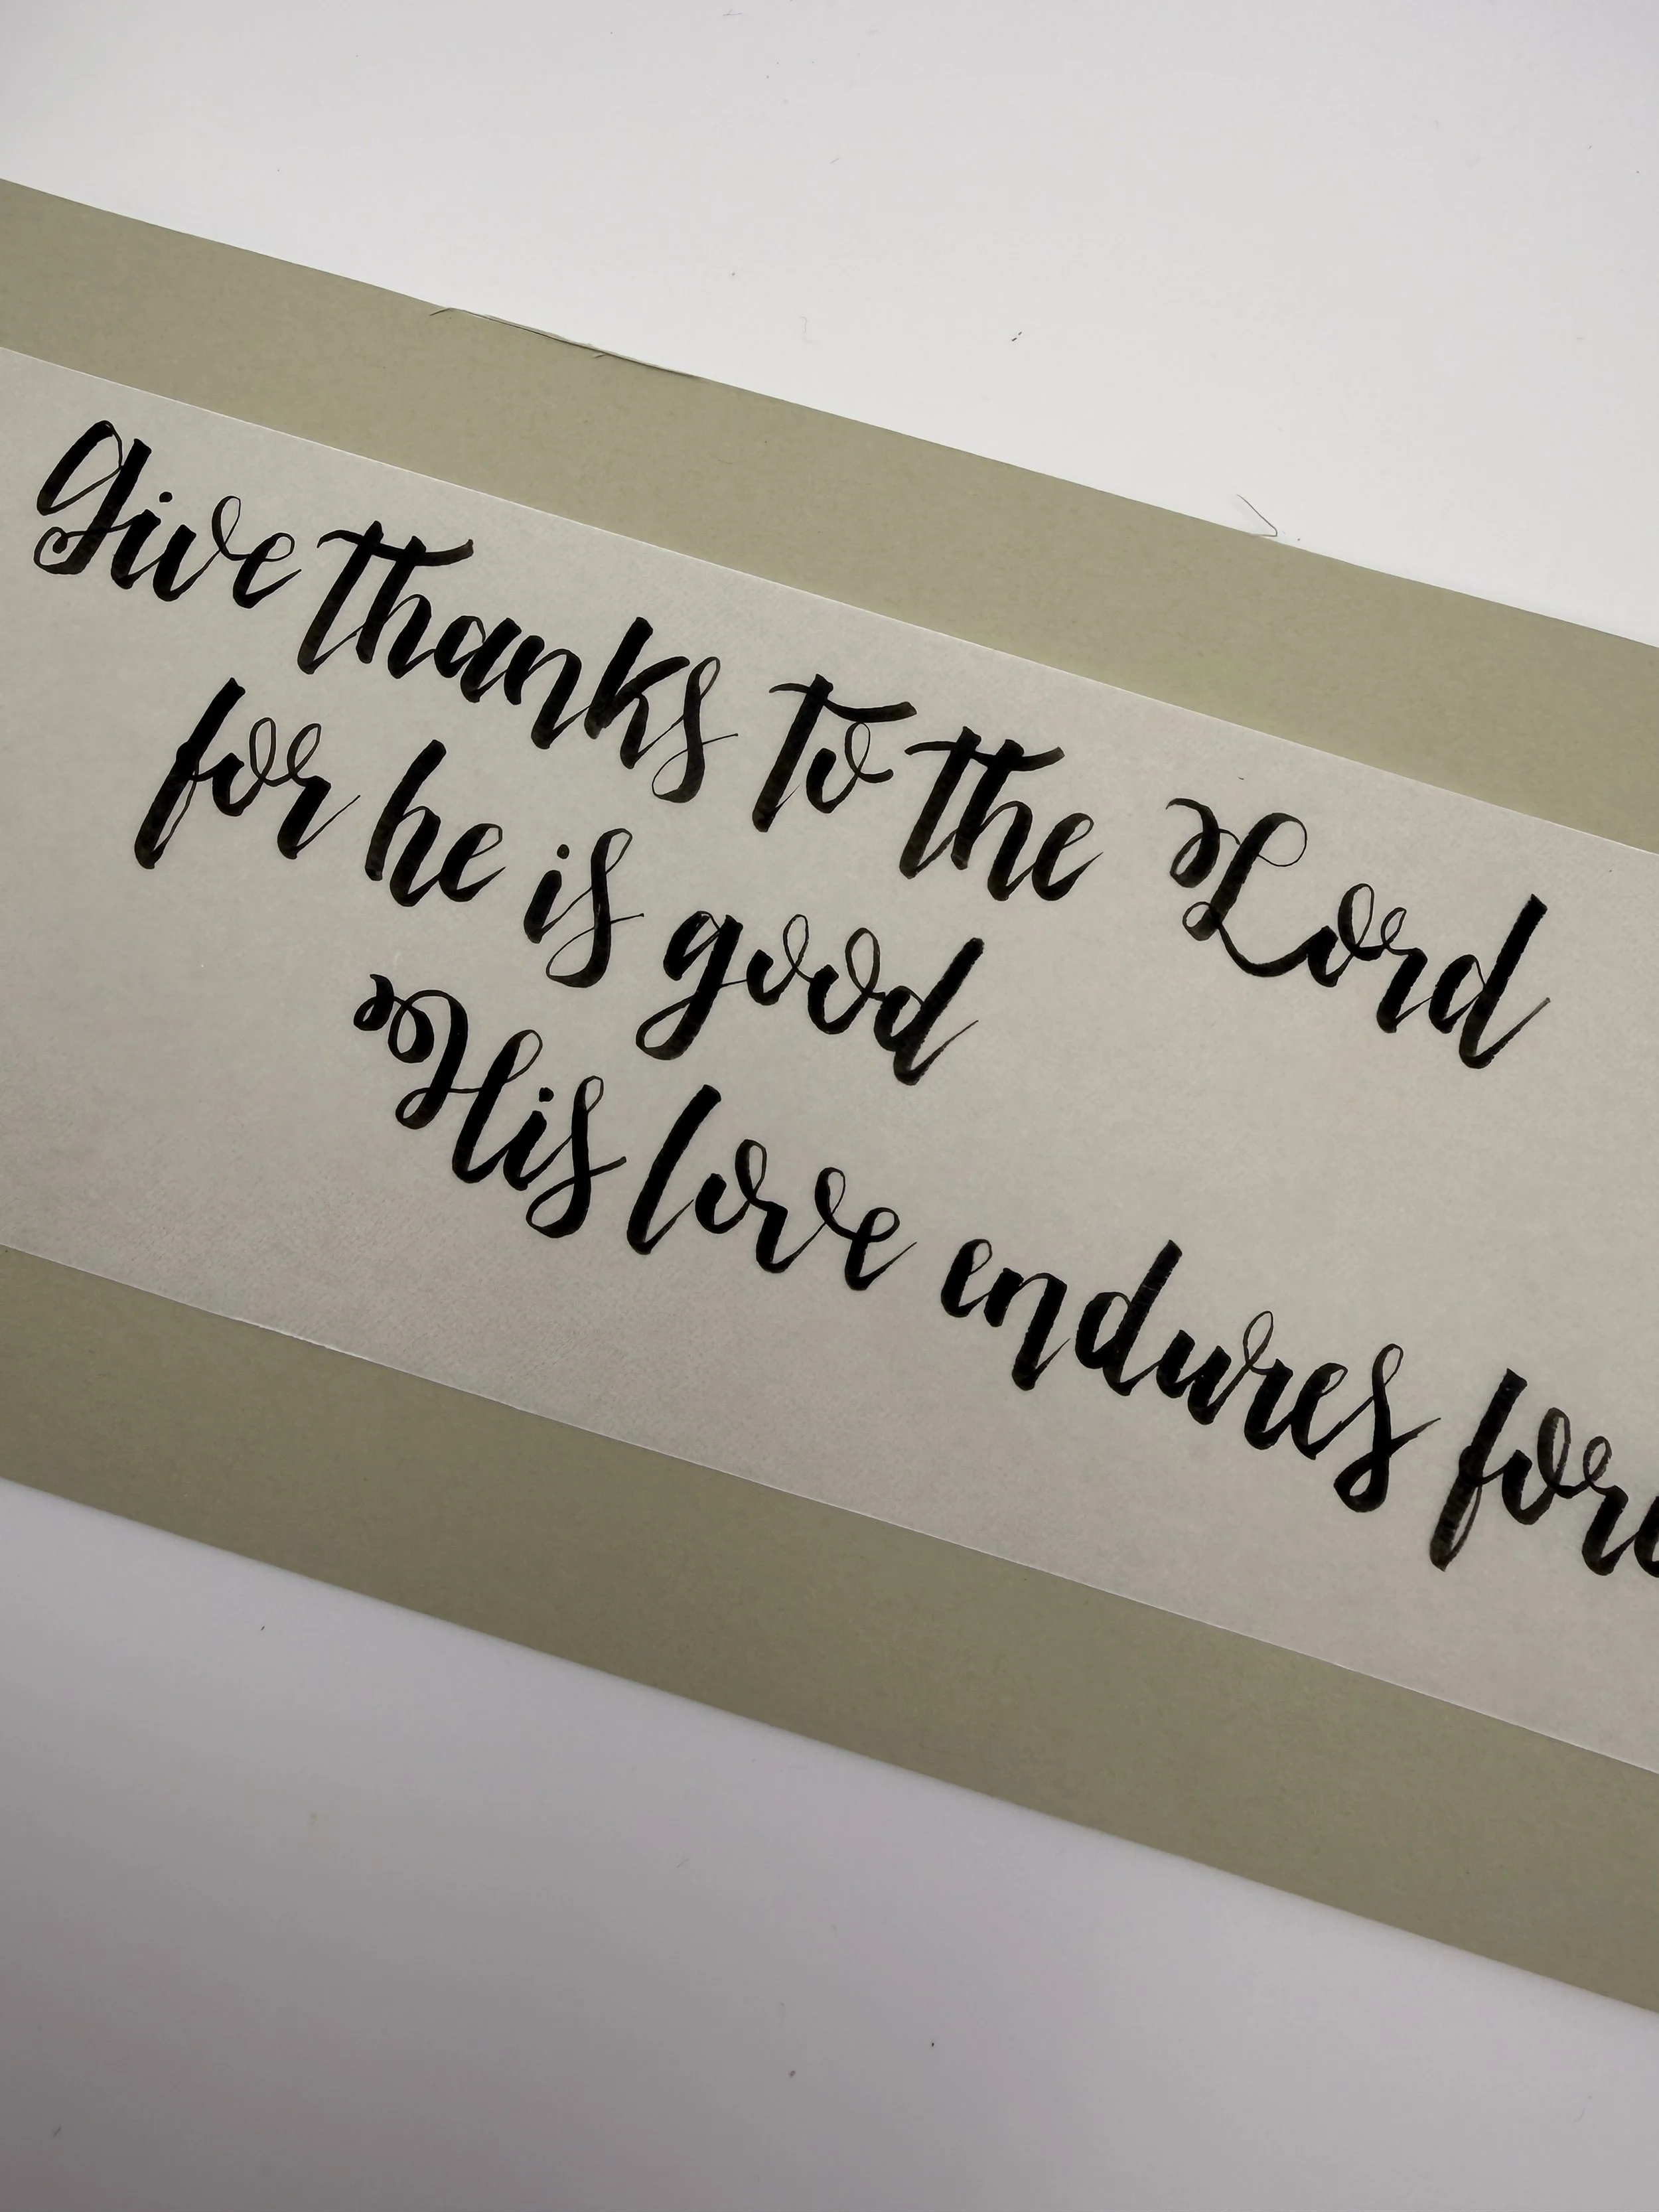 Give thanks to the Lord
for he is good
His love endures fore